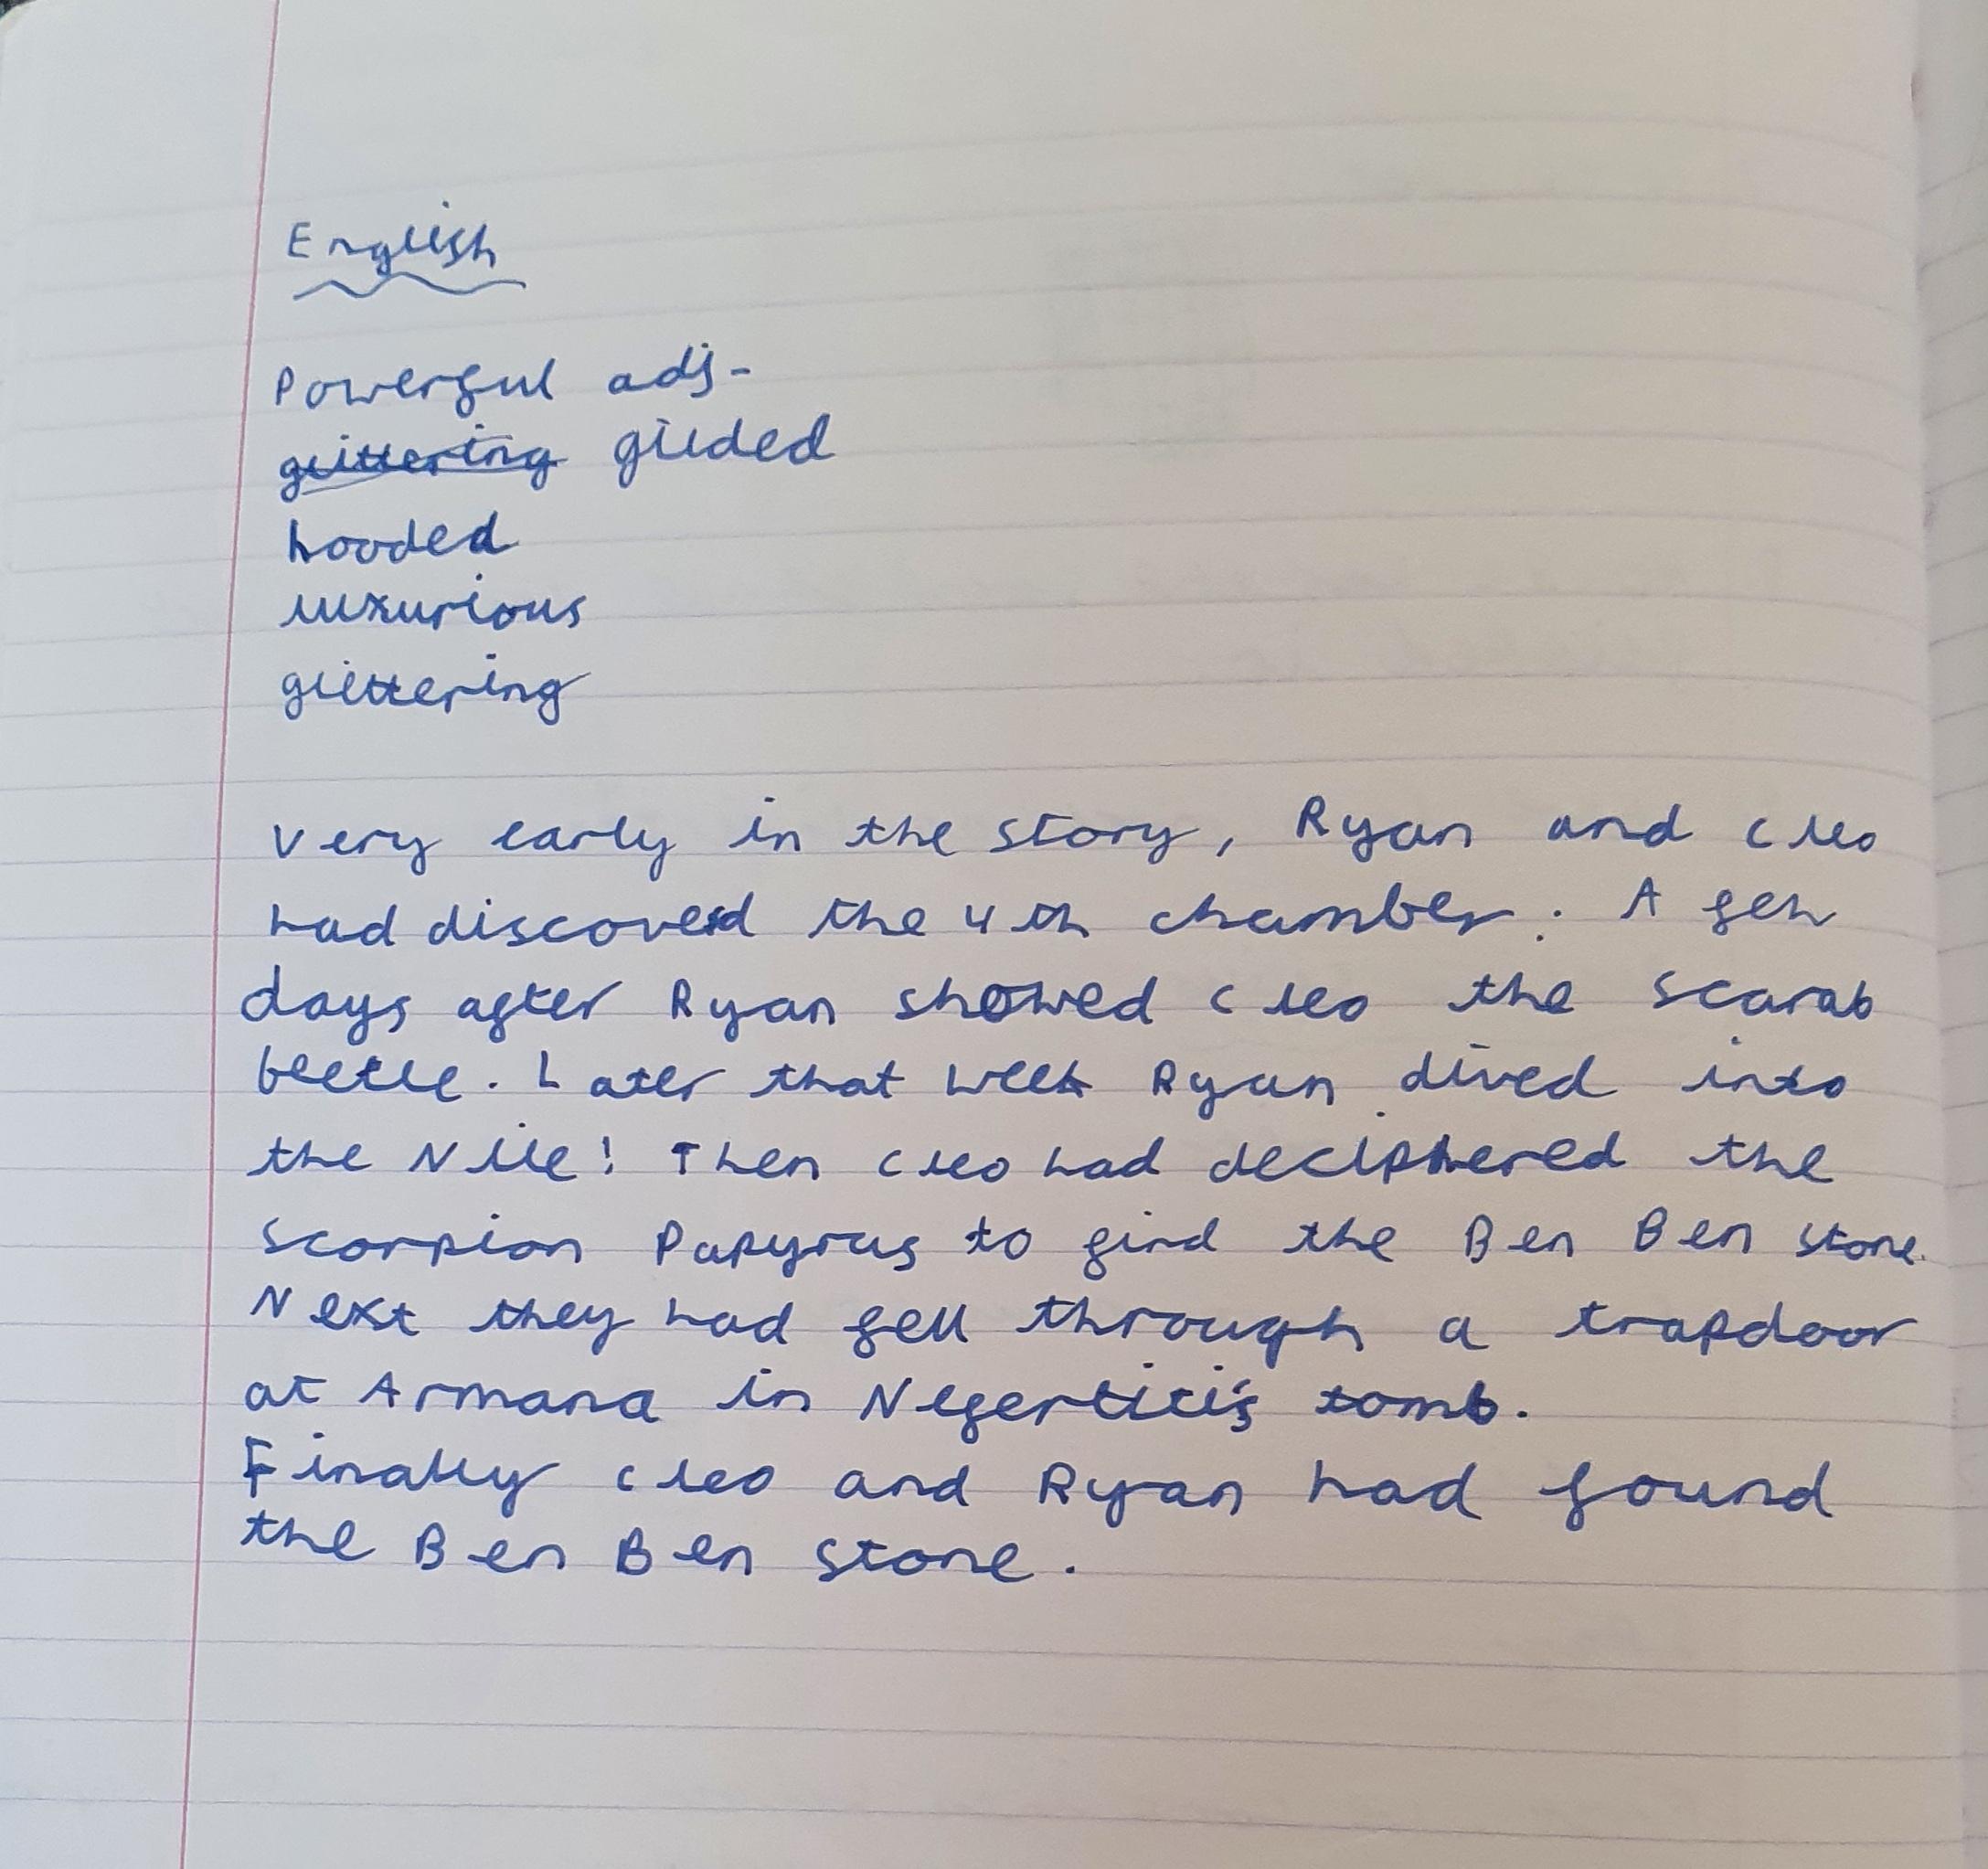 English
Powerful adj-
glittering gilded
hooded
luxurious
glittering
Very early in the story, Ryan and Cleo
had discoverd the 4th chamber. A few
days after Ryan showed Cleo the scarab
beetle. Later that week Ryan dived into
the Nile! Then Cleo had deciphered the
Scorpion Papyrus to find the Ben Ben stone.
Next they had fell through a trapdoor
at Armana in Nefertiti's tomb.
Finally Cleo and Ryan had found
the Ben Ben stone.